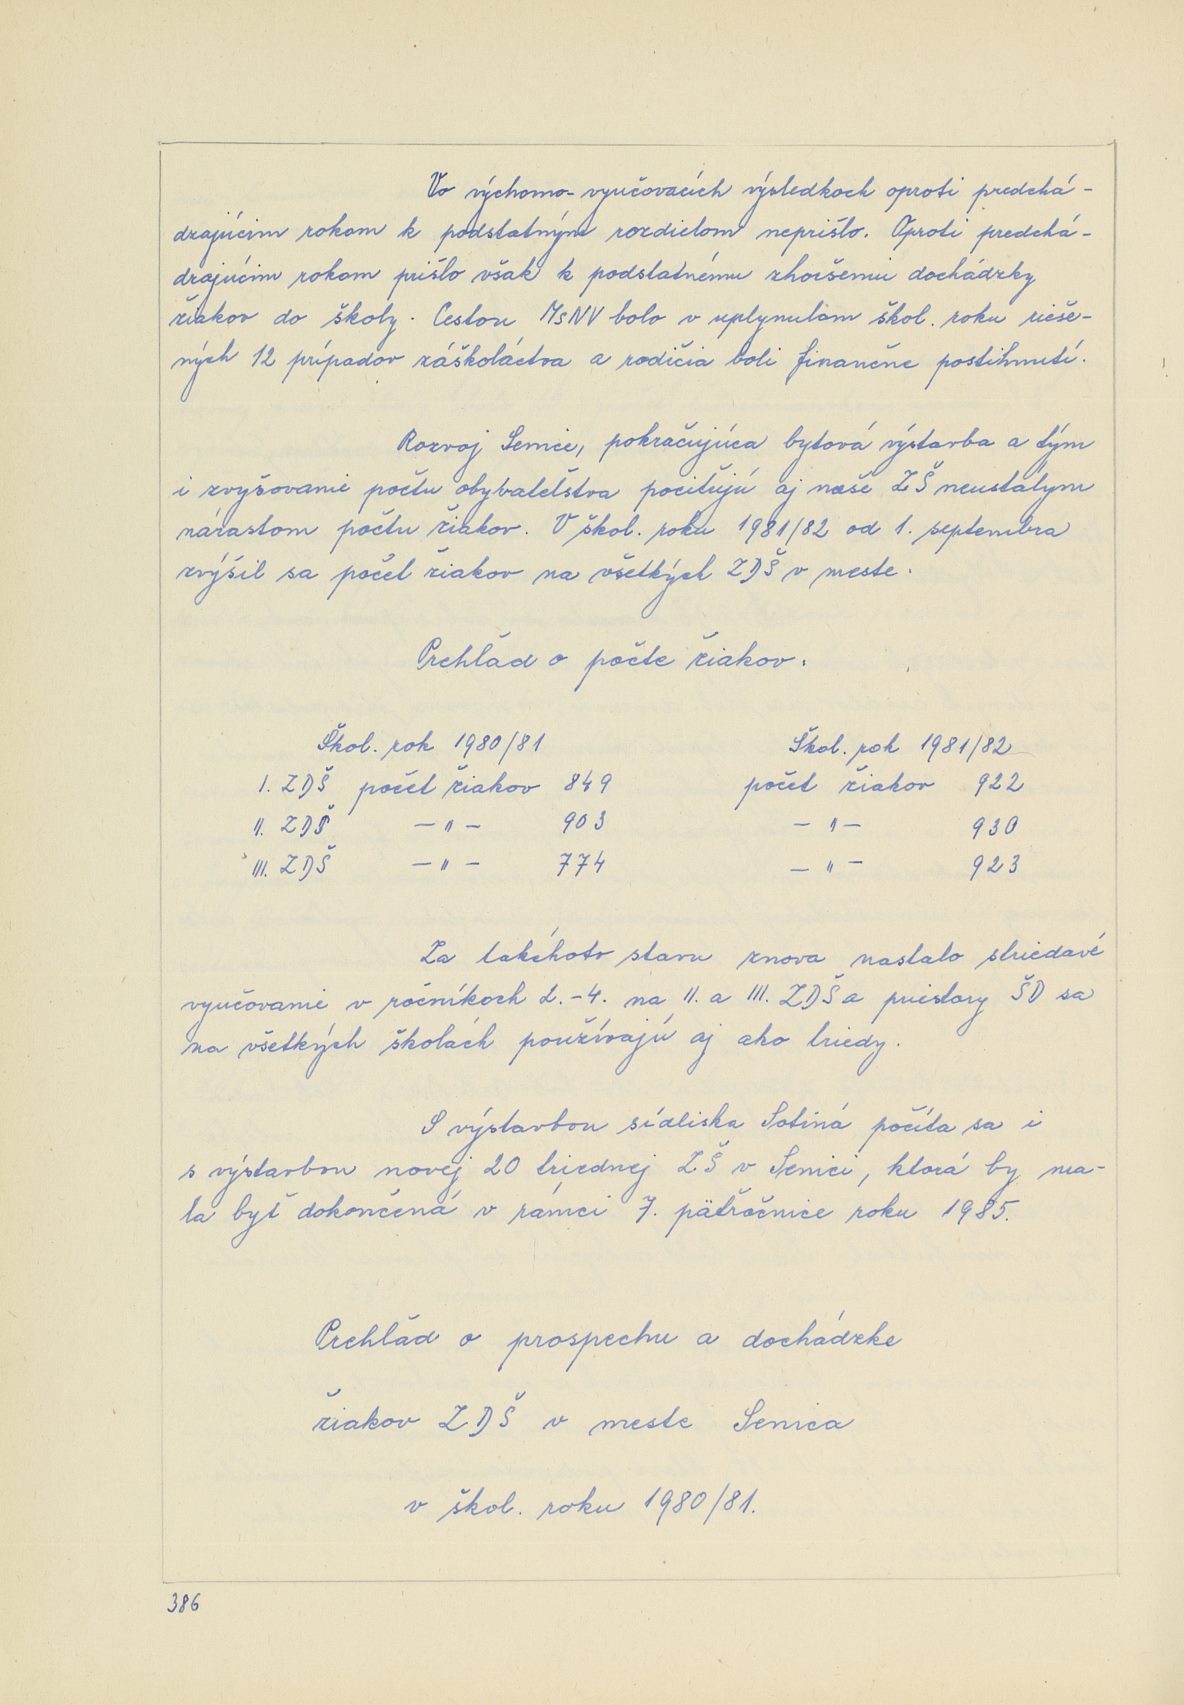 Vo výchomo-vyučovacích výsledkoch oproti predchá-
dzajúcim rokom k podstatným rozdielom neprišlo. Oproti predchá-
drajúcim rokom prišlo však k podstatnému zhoršeniu dochádzky
žiakov do školy. Cestou MsNV bolo v uplynulom škol. roku rieše-
ných 12 prípadov záškoláctva a rodičia boli finančne postihnutí.
Rozvoj Senice, pokračujúca bytová výstavba a tým
i zvyšovanie počtu obyvateľstva pociťujú aj naše ZŠ neustálym
nárastom počtu žiakov. V škol. roku 1981/82 od 1. septembra
zvýšil sa počet žiakov na všetkých ZDŠ v meste.
Prehľad o počte žiakov.
Škol. rok 1980/81 Škol. rok 1981/82
I. ZDŠ počet žiakov 849 počet žiakov 922
II. ZDŠ – " – 903 – " – 930
III. ZDŠ – " – 774 – " – 923
Za takéhoto stavu znova nastalo striedavé
vyučovanie v ročníkoch 2.-4. na II. a III. ZDŠ a priestory ŠD sa
na všetkých školách používajú aj ako triedy.
S výstavbou sídliska Sotiná počíta sa i
s výstavbou novej 20 triednej ZŠ v Senici, ktorá by ma-
la byť dokončená v rámci 7. päťročnice roku 1985.
Prehľad o prospechu a dochádzke
žiakov ZDŠ v meste Senica
v škol. roku 1980/81.
386